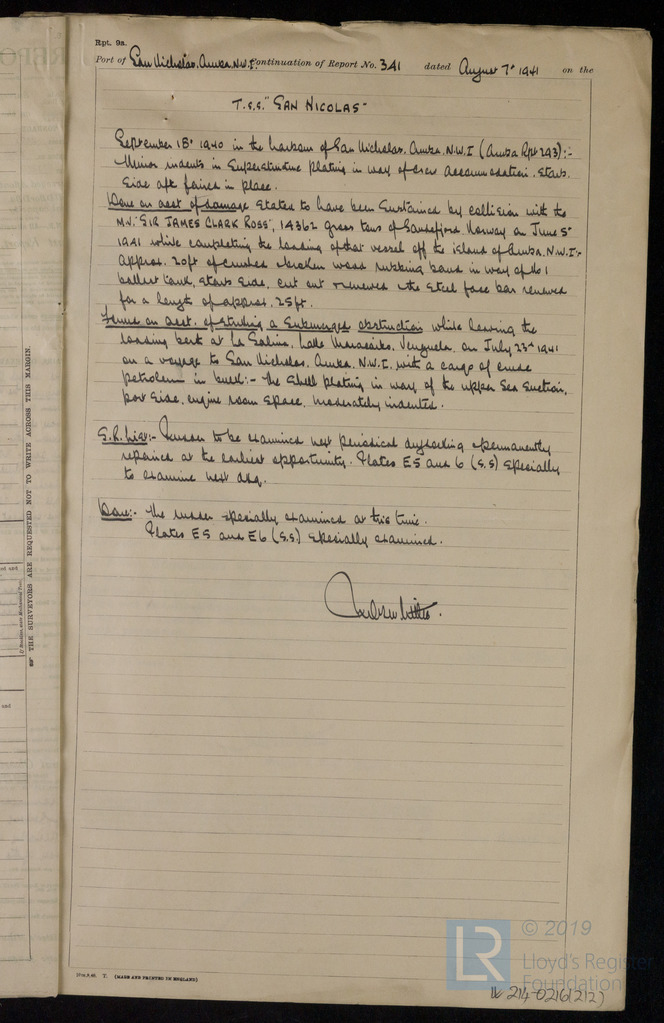 Rpt. 9a.
Port of San Nicholas. Aruba. N.W.I. Continuation of Report No. 341 dated August 7th 1941 on the
T.S.S. "SAN NICOLAS"
September 18th 1940 in the harbour of San Nicholas. Aruba. N.W.I (Aruba Rpt 293):-
Minor indents in superstructure plating in way of crew accommodation, starb.
side aft faired in place.
Done on acct of damage stated to have been sustained by collision with the
M.V. "SIR JAMES CLARK ROSS", 14362 gross tons of Sandefjord Norway on June 5th
1941 while completing the loading of that vessel off the island of Aruba. N.W.I:-
Approx. 20ft of crushed & broken wood rubbing band in way of No 1
ballast tank, starb side, cut out & renewed & the steel face bar renewed
for a length of approx. 25ft.
Found on acct. of striking a submerged obstruction while leaving the
loading berth at La Salina, Lake Maracaibo. Venezuela, on July 23rd 1941
on a voyage to San Nicholas. Aruba. N.W.I. with a cargo of crude
petroleum in bulk:- The shell plating in way of the upper sea suction,
port side, engine room space, moderately indented.
S.R. List:- Rudder to be examined next periodical drydocking & permanently
repaired at the earliest opportunity. Plates E5 and 6 (S.S) specially
to examine next ddg.
Done:- The rudder specially examined at this time.
Plates E5 and E6 (S.S.) specially examined.
THE SURVEYORS ARE REQUESTED NOT TO WRITE ACROSS THIS MARGIN.
T. (MADE AND PRINTED IN ENGLAND)
LR
© 2019
Lloyd's Register
Foundation
214-0216(2/2)